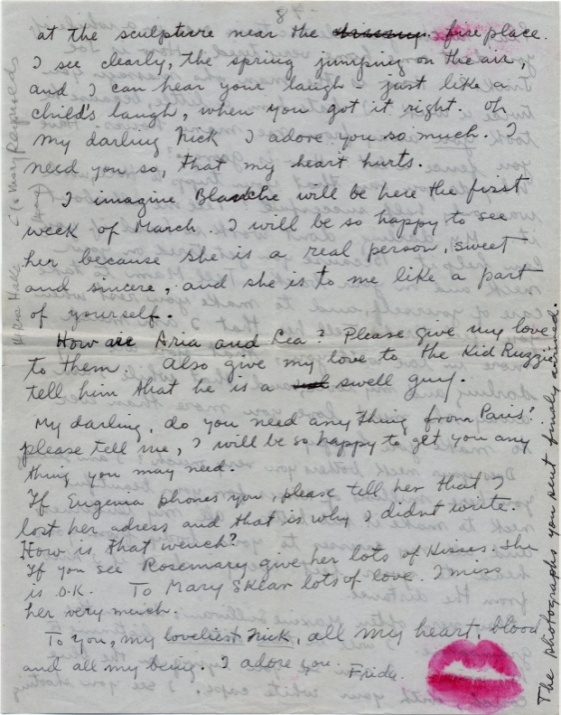 8
at the sculpture near the fire place.
I see clearly, the spring jumping on the air,
and I can hear your laugh – just like a
child's laugh, when you got it right. Oh
my darling Nick I adore you so much. I
need you so, that my heart hurts.
I imagine Blanche will be here the first
week of March. I will be so happy to see
her because she is a real person, sweet
and sincere, and she is to me like a part
of yourself.
How are Aria and Lea? Please give my love
to them. Also give my love to the Kid Ruzzie
tell him that he is a swell guy.
My darling, do you need any thing from Paris?
please tell me, I will be so happy to get you any
thing you may need.
If Eugenia phones you, please tell her that I
lost her adress and that is why I didnt write.
How is that wench?
If you see Rosemary give her lots of kisses. She
is O.K. To Mary Sklar lots of love. I miss
her very much.
To you, my loveliest Nick, all my heart, blood
and all my being. I adore you. Frida.
The photographs you sent finaly arrived.